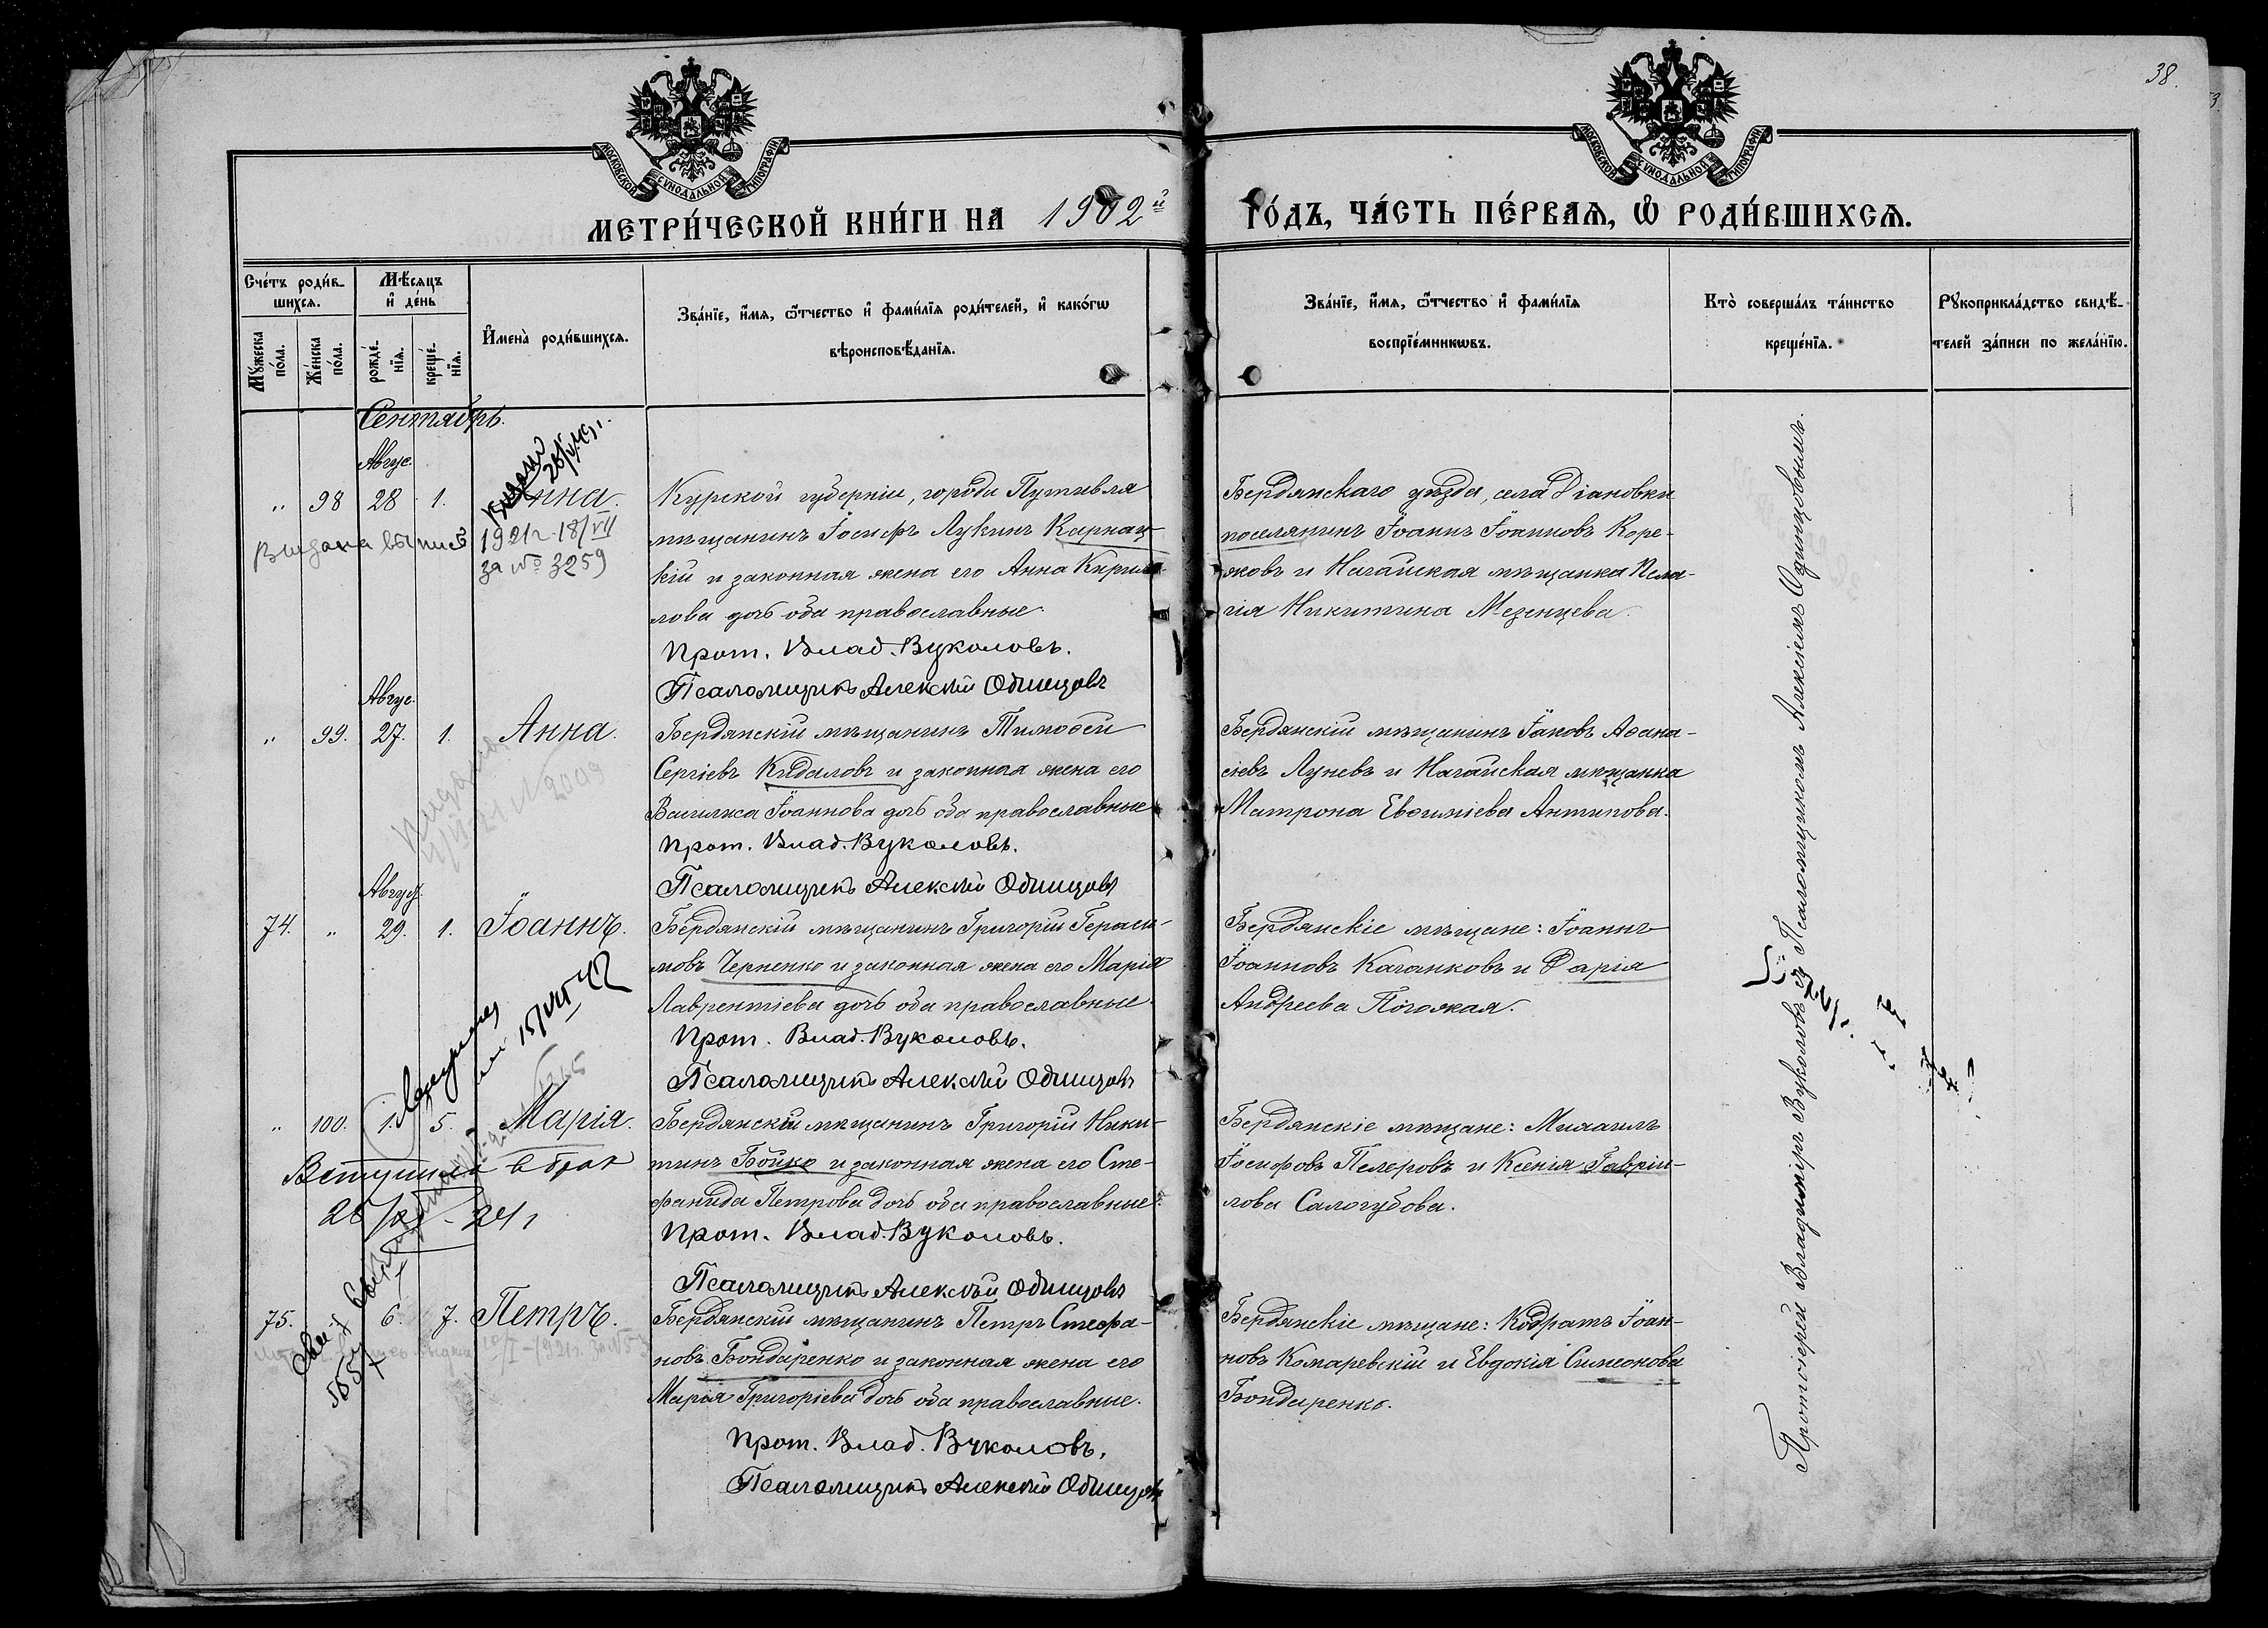 38.
МОСКОВСКОЙ СѴНОДАЛЬНОЙ ТИПОГРАФІИ
МОСКОВСКОЙ СѴНОДАЛЬНОЙ ТИПОГРАФІИ
МЕТРИ́ЧЕСКОЙ КНИ́ГИ НА 1902й ГО́ДЪ, ЧА́СТЬ ПЕ́РВАЯ, Ѡ РОДИ́ВШИХСЯ.
Сче́тъ роди́в-
шихся.
Мꙋ́жеска по́ла.
Же́нска по́ла.
Мѣ́сяцъ
и҆ де́нь
рожде́-
нїя.
креще́-
нїя.
И҆мена̀ роди́вшихся.
Зва́нїе, и҆́мя, ѻ҆́тчество и҆ фами́лїя роди́телей, и҆ како́гѡ
вѣроисповѣ́данїя.
Зва́нїе, и҆́мя, ѻ҆́тчество и҆ фами́лїя
воспрїе́мникѡвъ.
Кто̀ соверша́лъ та́инство
креще́нїя.
Рꙋкоприкла́дство свидѣ́-
телей за́писи по жела́нїю.
Сентябрь.
Авгус.
„ 98 28 1. Анна.
Выдана выпись 1921г. 18/VII
за № 3259
Курской губерніи, города Путивля
мѣщанинъ Іосифъ Лукинъ Карнац-
кій и законная жена его Анна Кирил-
лова дочь оба православные.
Прот. Влад. Вуколовъ.
Псаломщикъ Алексій Одинцовъ
Бердянскаго уѣзда, села Діановки
поселянинъ Іоаннъ Іоанновъ Коре-
яковъ и Ногайская мѣщанка Пела-
гія Никитина Мезенцева.
Авгус.
„ 99. 27. 1. Анна.
Бердянскій мѣщанинъ Тимоѳей
Сергіевъ Кидаловъ и законная жена его
Василиса Іоаннова дочь оба православные
Прот. Влад. Вуколовъ.
Псаломщикъ Алексій Одинцовъ
Бердянскій мѣщанинъ Іаковъ Аѳана-
сіевъ Луневъ и Ногайская мѣщанка
Матрона Евѳиміева Антипова.
Август.
74. „ 29. 1. Іоаннъ.
Бердянскій мѣщанинъ Григорій Гераси-
мовъ Черненко и законная жена его Марія
Лаврентіева дочь оба православные.
Прот. Влад. Вуколовъ.
Псаломщикъ Алексій Одинцовъ
Бердянскіе мѣщане: Іоаннъ
Іоанновъ Каганковъ и Дарія
Андреева Погожая.
„ 100. 1. 5. Марія.
Вступила в брак
Бердянскій мѣщанинъ Григорій Ники-
тинъ Бойко и законная жена его Сте-
фанида Петрова дочь оба православные.
Прот. Влад. Вуколовъ.
Псаломщикъ Алексій Одинцовъ
Бердянскіе мѣщане: Михаилъ
Іосифовъ Пелеровъ и Ксенія Гаврі-
лова Салогубова.
75. 6. 7. Петръ.
Бердянскій мѣщанинъ Петръ Стефа-
новъ Бондаренко и законная жена его
Марія Григоріева дочь оба православные.
Прот. Влад. Вуколовъ.
Псаломщикъ Алексій Одинцовъ
Бердянскіе мѣщане: Кодратъ Іоан-
новъ Комаревскій и Евдокія Симеонова
Бондаренко.
Протоіерей Владиміръ Вуколовъ съ Псаломщикомъ Алексіемъ Одинцовымъ.